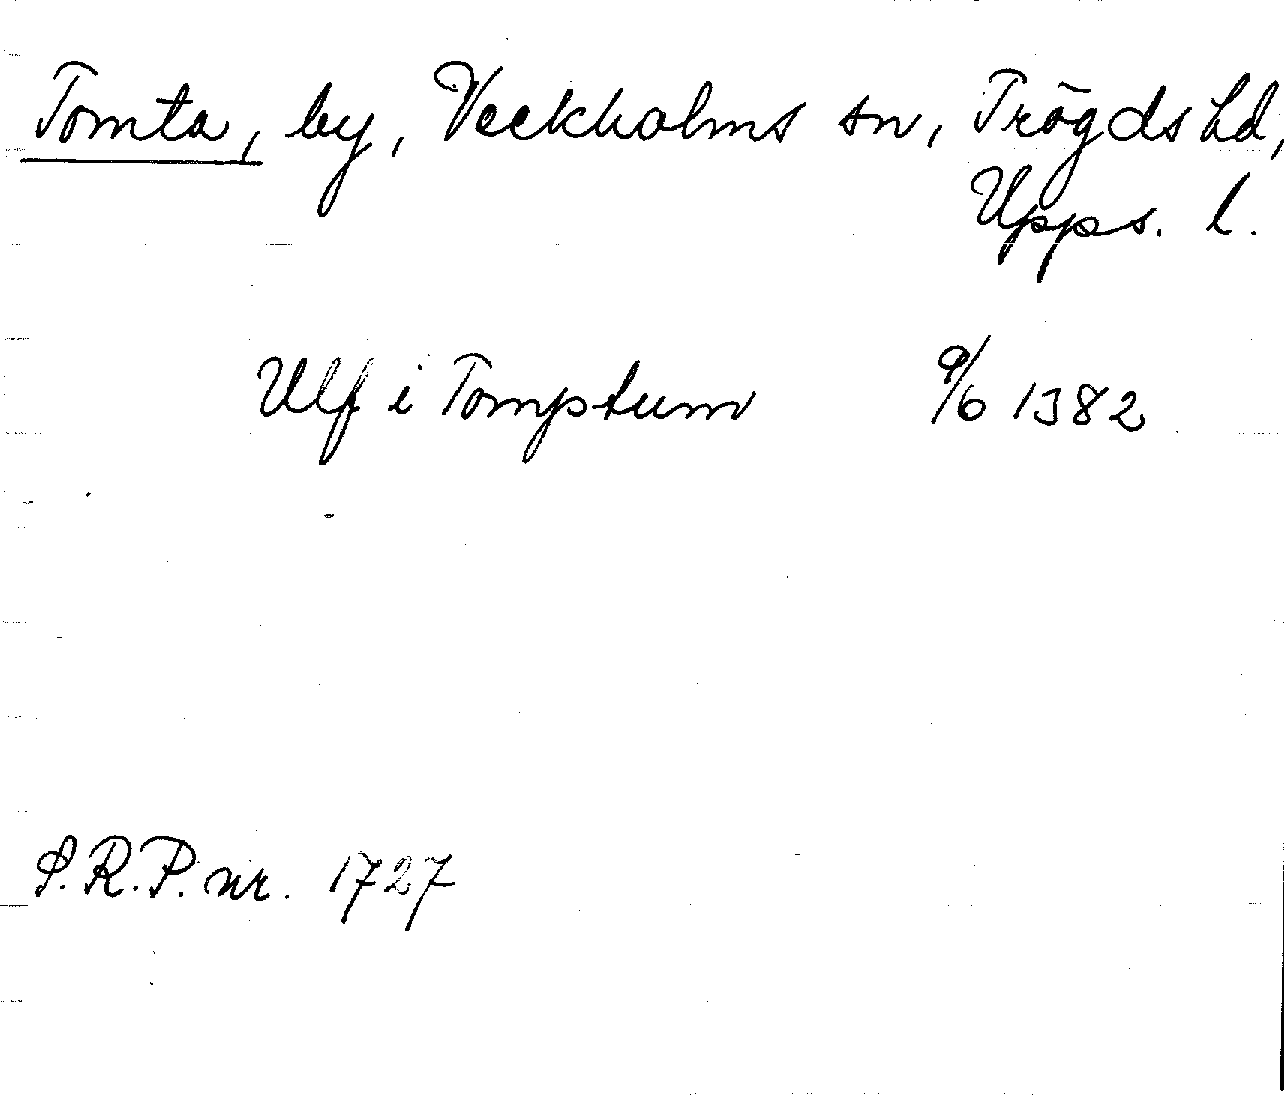 Tomta, by, Veckholms sn, Trögds hd,
Upps. l.
Ulf i Tomptum 9/6 1382
S.R.P. nr. 1727